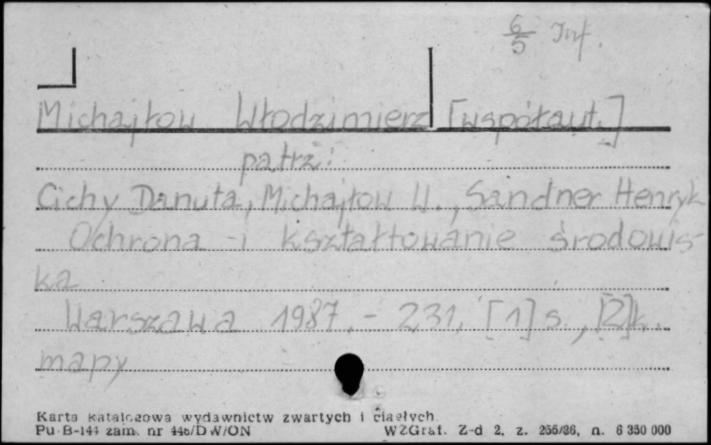 6/5 Inf.
Michajłow Włodzimierz [współaut.]
patrz:
Cichy Danuta, Michajłow W., Sandner Henryk
Ochrona i kształtowanie środowis-
ka
Warszawa 1987. - 231, [1] s., [2] k.
mapy
Karta katalogowa wydawnictw zwartych i ciągłych.
Pu B-144 zam. nr 446/DW/ON WZGraf. Z-d 2, z. 256/86, n. 6 350 000